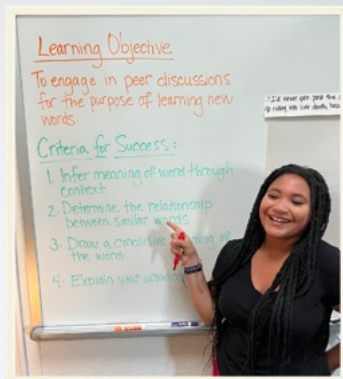 Learning Objective
To engage in peer discussions
for the purpose of learning new
words.
Criteria for Success:
1. Infer meaning of word through
context
2. Determine the relationship
between similar words
3. Draw a conclusive meaning of
the word
4. Explain your
"I'd never get past the